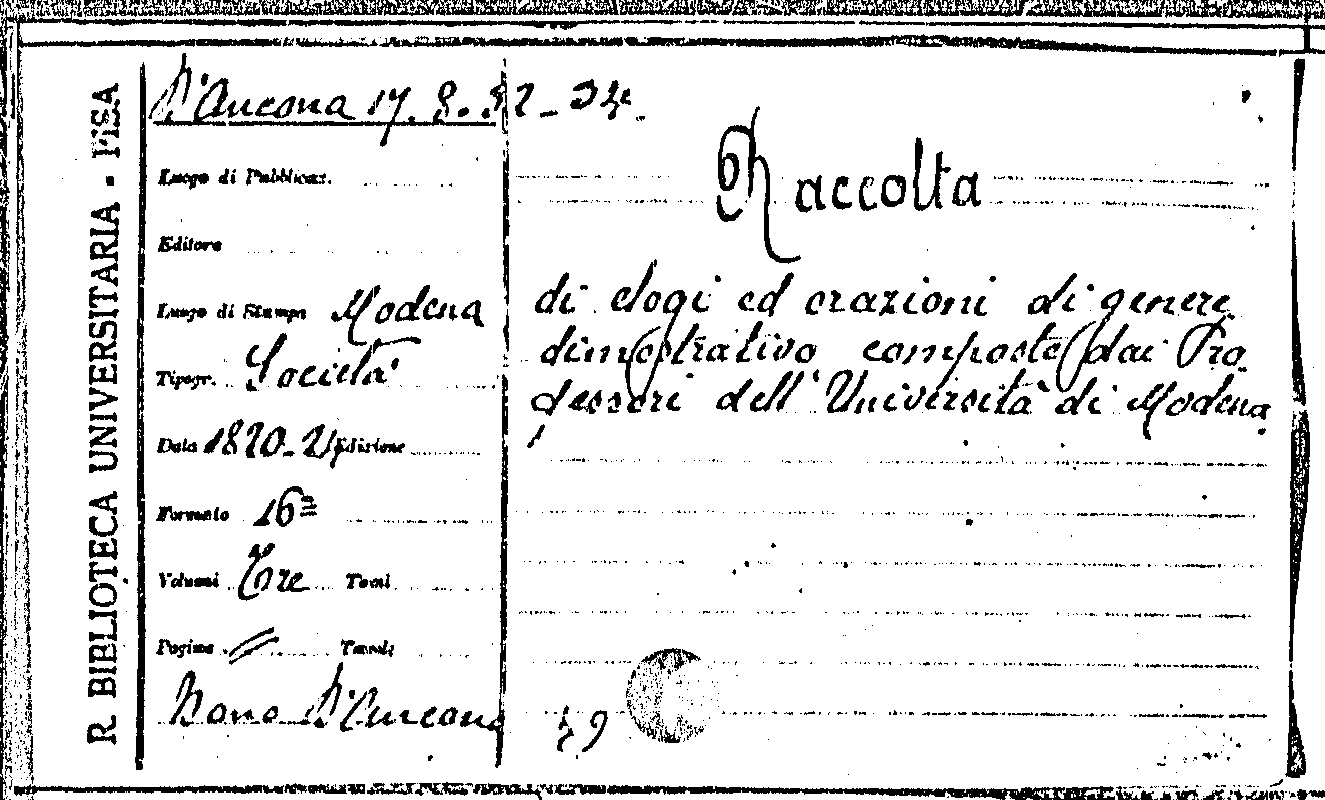 R BIBLIOTECA UNIVERSITARIA - PISA
D'Ancona 17. 8. 32-34.
Luogo di Pubblicaz.
Raccolta
Editore
Luogo di Stampa Modena
di elogi ed orazioni di genere
Tipogr. Società
dimostrativo composte dai Pro
fessori dell'Università di Modena
Data 1820-21 Edizione
Formato 16º
Volumi Tre Tomi
Pagine // Tavole
Dono D'Ancona